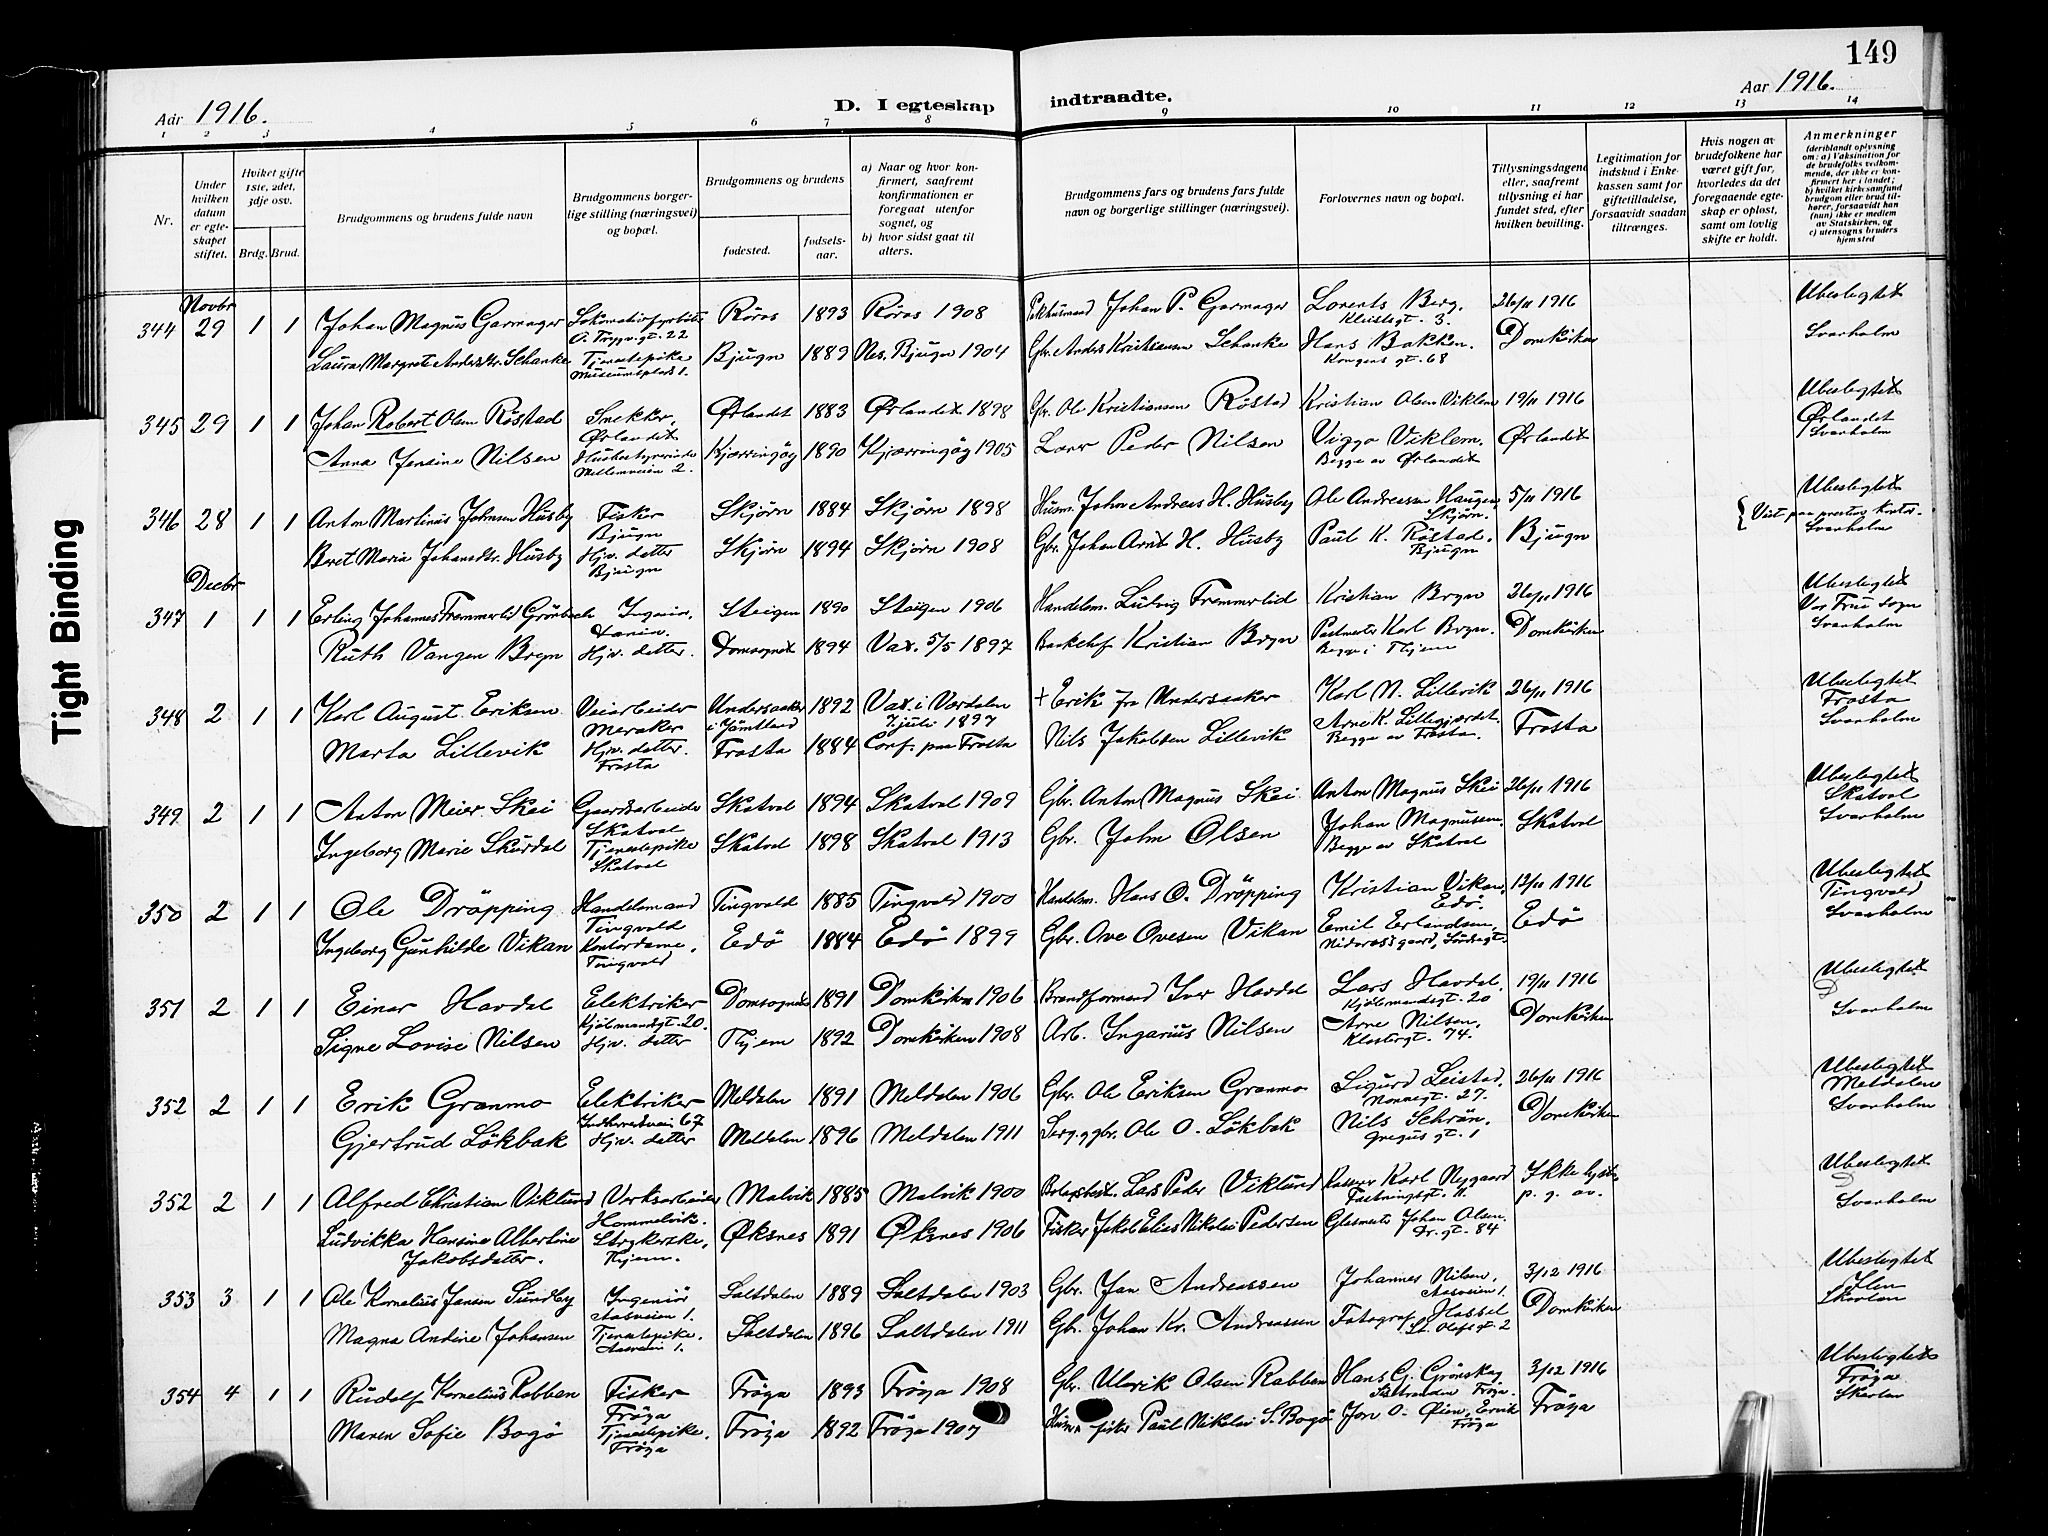 149
Aar 1916.
D. I egteskap indtraadte.
Aar 1916.
1 2 3 4 5 6 7 8 9 10 11 12 13 14
Nr.
Under hvilken datum er egteskapet stiftet.
Hvilket gifte 1ste, 2det, 3dje osv.
Brdg. Brud.
Brudgommens og brudens fulde navn
Brudgommens borgerlige stilling (næringsvei) og bopæl.
Brudgommens og brudens
fødested.
fødselsaar.
a) Naar og hvor konfirmert, saafremt konfirmationen er foregaat utenfor sognet, og
b) hvor sidst gaat til alters.
Brudgommens fars og brudens fars fulde navn og borgerlige stillinger (næringsvei).
Forlovernes navn og bopæl.
Tillysningsdagene eller, saafremt tillysning ei har fundet sted, efter hvilken bevilling.
Legitimation for indskud i Enkekassen samt for giftetilladelse, forsaavidt saadan tiltrænges.
Hvis nogen av brudefolkene har været gift før, hvorledes da det foregaaende egteskap er opløst, samt om lovlig skifte er holdt.
Anmerkninger (deriblandt oplysning om: a) Vaksination for de brudefolks vedkommende, der ikke er konfirmert her i landet; b) hvilket kirkesamfund brudgom eller brud tilhører, forsaavidt han (hun) ikke er medlem av Statskirken, og c) utensogns bruders hjemsted
Novbr
344 29 1 1 Johan Magnus Garmager Røros 1893 Røros 1908 Johan P. Garmager Lorents Berg. 26/11 1916 Ubeslegtet
O. Trygv.gt. 22 Klostergt. 3.
Laura Margrete Andersdtr. Schanke Tjenestepike Bjugn 1889 Nes. Bjugn 1904 Gbr. Anders Kristiansen Schanke Hans Bakken. Domkirken Svarholm
Museumsplads 1. Kongens gt. 68
345 29 1 1 Johan Robert Olsen Röstad Snekker, Ørlandet 1883 Ørlandet 1898 Gbr. Ole Kristiansen Röstad Kristian Olsen Viklem 19/11 1916 Ubeslegtet
Ørlandet Ørlandet
Anna Jensine Nilsen Husbestyrerinde Kjærringøy 1890 Kjærringöy 1905 Peder Nilsen Viggo Viklem. Ørlandet Svarholm
Mellemveien 2. Begge av Ørlandet
346 28 1 1 Anton Martinus Johnsen Husby Fisker Skjørn 1884 Skjørn 1898 Husm. John Andreas H. Husby Ole Andreassen Haugen, 5/11 1916 Ubeslegtet
Bjugn Skjørn. Vist paa prestens kontor.
Beret Marie Johansdtr. Husby Hjv. datter Skjørn 1894 Skjørn 1908 Gbr. Johan Arnt H. Husby Paul K. Röstad. Bjugn Svarholm
Bjugn Bjugn
Decbr
347 1 1 1 Erling Johannes Fremmerlid Grönbech Ingeniør, Steigen 1890 Steigen 1906 Handelsm. Ludvig Fremmerlid Kristian Bryn 26/11 1916 Ubeslegtet
Vor Frue sogn
Ruth Vangen Bryn Hjv. datter. Domsognet 1894 Vax. 5/5 1897 Bankchef Kristian Bryn Postmester Karl Bryn. Domkirken Svarholm
Begge i Thjem
348 2 1 1 Karl August Eriksen Veiarbeider Undersaaker 1892 Vax. i Værdalen + Erik fra Undersaaker Karl N. Lillevik 26/11 1916 Ubeslegtet
Meraker i Jämtland 7 juli 1897 Arne K. Lillegjærdet. Frosta
Marta Lillevik Hjv. datter. Frosta 1884 Conf. paa Frosta Nils Jakobsen Lillevik Begge av Frosta. Frosta Svarholm
Frosta
349 2 1 1 Anton Meier Skei Gaardsarbeider Skatval 1894 Skatval 1909 Gbr. Anton Magnus Skei Anton Magnus Skei 26/11 1916 Ubeslegtet
Skatval Skatval
Ingeborg Marie Skurdal Tjenestepike Skatval 1898 Skatval 1913 Gbr. John Olsen Johan Magnussen. Skatval Svarholm
Skatval Begge av Skatval
350 2 1 1 Ole Dröpping Handelsmand Tingvold 1885 Tingvold 1900 Handelsm. Hans O. Dröpping Kristian Vikan, 12/11 1916 Ubeslegtet
Tingvold Edö. Tingvold
Ingeborg Gunhilde Vikan Kontordame, Edö 1884 Edö 1899 Gbr. Ove Ovesen Vikan Emil Erlandsen, Edö Svarholm
Tingvold
351 2 1 1 Einar Havdal Elektriker Domsognet 1891 Domkirken 1906 Brandformand Iver Havdal Lars Havdal, 19/11 1916 Ubeslegtet
Kjöbmandsgt. 20. Kjöbmandsgt. 20 D
Signe Lovise Nilsen Hjv. datter Thjem 1892 Domkirken 1908 Arb. Ingarius Nilsen Arne Nilsen, Domkirken Svarholm
Klostergt. 74.
352 2 1 1 Erik Granmo Elektriker Meldalen 1891 Meldalen 1906 Gbr. Ole Eriksen Granmo Sigurd Leistad, 26/11 1916 Ubeslegtet
Indherredsvei 67 Nonnegt. 27. Meldalen
Gjertrud Lökbak Hjv. datter Meldalen 1896 Meldalen 1911 Serg. g gbr. Ole O. Lökbak Nils Schrän, Domkirken Svarholm
352 2 1 1 Alfred Christian Viklund Verksarbeider Malvik 1885 Malvik 1900 Lars Peder Viklund Karl Nygaard Ikke lyst Ubeslegtet
Hommelvik. Fæstningsgt. 11. p. g. av.
Ludvikka Hansine Albertine Strykerske, Øksnes 1891 Øksnes 1906 Fisker Jakob Elias Nikolai Pedersen Glasmester Johan Olsen. Svarholm
Jakobsdatter. Thjem. Dr.gt. 84
353 3 1 1 Ole Kornelius Jansen Sundby Ingeniör Saltdalen 1889 Saltdalen 1903 Gbr. Jan Andreassen Johannes Nilsen, 3/12 1916 Ubeslegtet
Aasveien 1. Aasveien 1. Ilen
Magna Andine Johansen Tjenestepike. Saltdalen 1896 Saltdalen 1911 Gbr. Johan Kr. Andreassen Fotograf Hassel Domkirken Skarlan
Aasveien 1. St. Olafsgt. 2
354 4 1 1 Rudolf Kornelius Rabben Fisker Fröya 1893 Fröya 1908 Gbr. Ulrik Olsen Rabben Hans G. Grönskag 3/12 1916 Ubeslegtet
Fröya Fröya. Fröya
Maren Sofie Bogö Tjenestepike. Fröya 1892 Fröya 1907 fisker Paul Nikolai S. Bogö Jon O. Øien, Fröya Skarlan
Fröya Fröya
Tight Binding